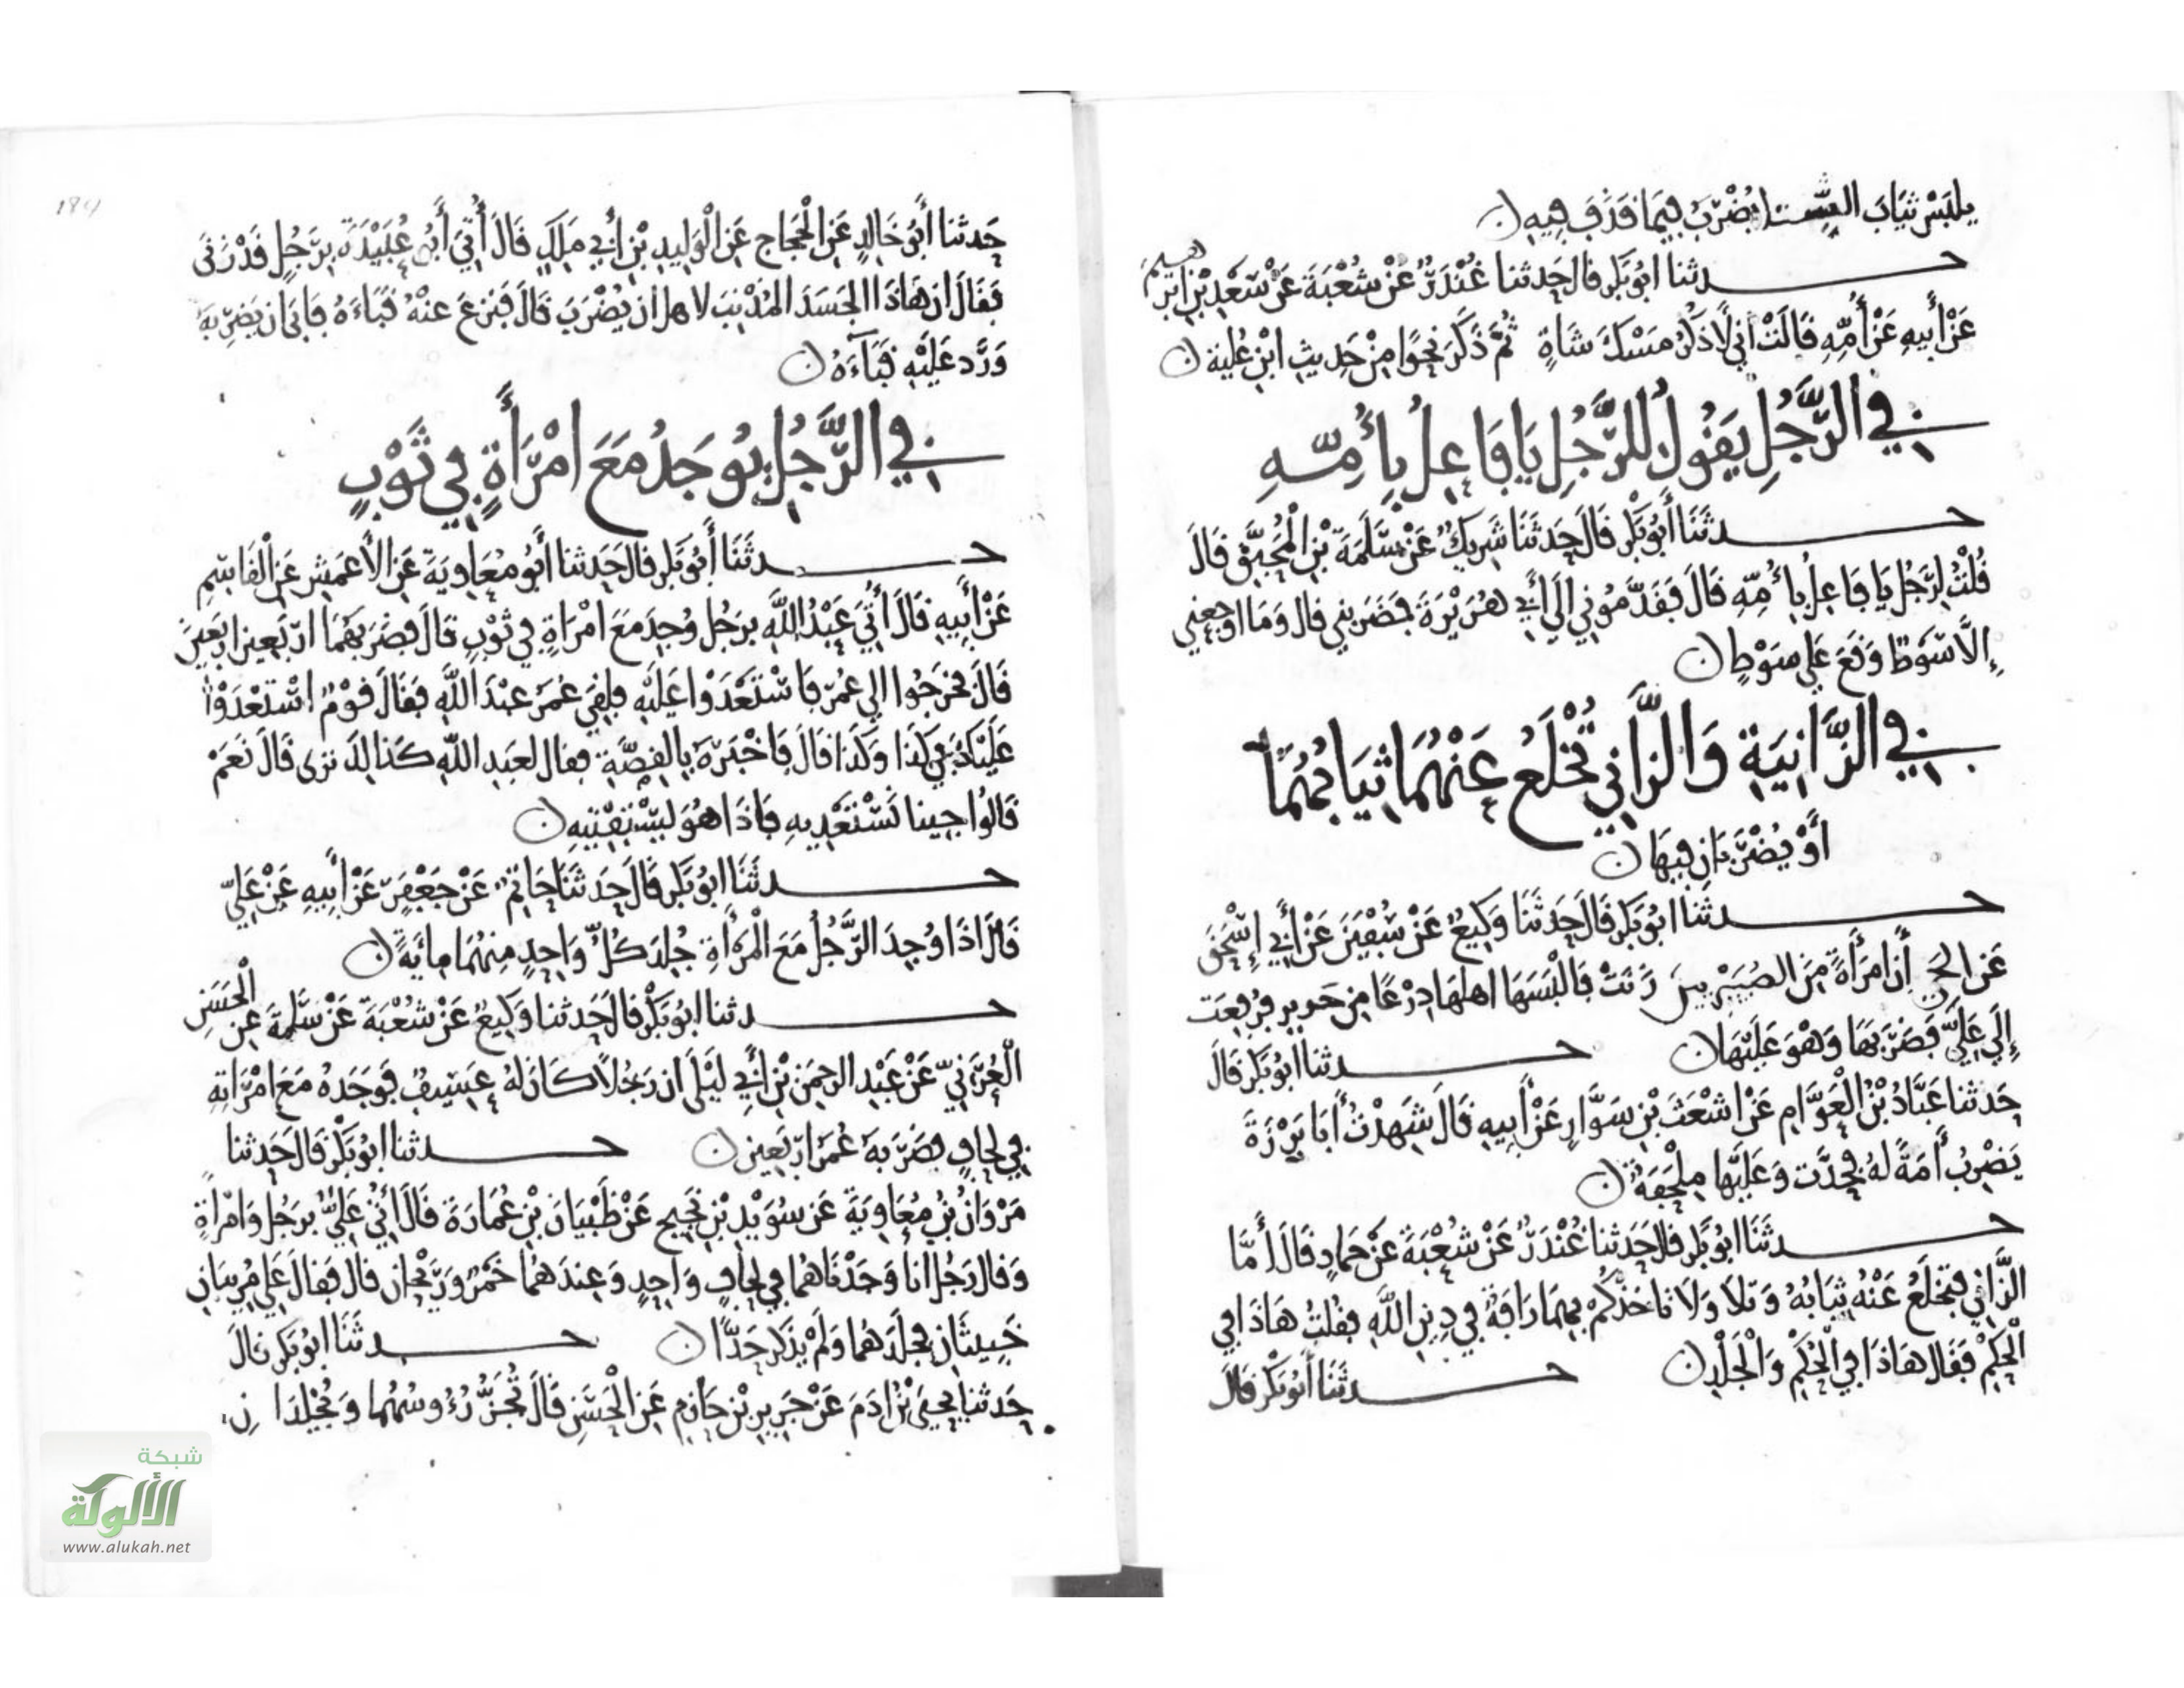 يلبس ثياب الشتا يضرب فيما قذف فيه
حدثنا ابو بكر قال حدثنا غندر عن شعبة عن سعد بن ابرهيم
عن أبيه عن أمه قالت اني لأذكر مسك شاة ثم ذكر نحوا من حديث ابن علية
في الرجل يقول للرجل يا فاعل بأمه
حدثنا أبو بكر قال حدثنا شريك عن سلمة بن المحبق قال
قلت لرجل يا فاعل بأمه قال فقدموني الى أبي هريرة فضربني قال وما اوجعني
إلا سوط وقع على سوط
في الزانية والزاني تخلع عنهما ثيابهما
أو يضربان فيها
حدثنا ابو بكر قال حدثنا وكيع عن سفين عن أبي إسحق
عن أن امرأة من زنت فالبسها اهلها درعا من حديد فرفعت
إلى علي فضربها وهو عليها حدثنا ابو بكر قال
حدثنا عباد بن العوام عن اشعث بن سوار عن أبيه قال شهدت أبا برزة
يضرب أمة له فجرت وعليها ملحفة
حدثنا ابو بكر قال حدثنا غندر عن شعبة عن حماد قال أما
الزاني فتخلع عنه ثيابه وتلا ولا تاخذكم بهما رافة في دين الله فقلت هاذا في
الحكم فقال هاذا في الحكم والجلد حدثنا أبو بكر قال
184
حدثنا أبو خالد عن الحجاج عن الوليد بن أبي ملك قال أتي أبو عبيدة برجل قد زنى
فقال ان هاذا الجسد المذنب لاهل ان يضرب قال فنزع عنه قباءه فابى ان يضربه
ورد عليه قباءه
في الرجل يوجد مع امرأة في ثوب
حدثنا أبو بكر قال حدثنا أبو معاوية عن الأعمش عن القاسم
عن أبيه قال أتي عبد الله برجل وجد مع امرأة في ثوب قال فضربهما اربعين اربعين
قال فخرجوا الى عمر فاستعدوا عليه فلقي عمر عبد الله فقال قوم استعدوا
عليك في كذا وكذا قال فاخبره بالقصة فقال لعبد الله كذالك ترى قال نعم
قالوا جينا نستعديه فاذا هو يستفتيه
حدثنا ابو بكر قال حدثنا حاتم عن جعفر عن أبيه عن علي
قال اذا وجد الرجل مع المرأة جلد كل واحد منهما مائة
حدثنا ابو بكر قال حدثنا وكيع عن شعبة عن سلمة عن الحسن
العرني عن عبد الرحمن بن أبي ليلى ان رجلا كان له عسيف فوجده مع امراته
في لحاف فضربه عمر اربعين حدثنا ابو بكر قال حدثنا
مروان بن معاوية عن سويد بن نجيح عن ظبيان بن عمارة قال أتي علي برجل وامرأة
وقال رجل انا وجدناهما في لحاف واحد وعندهما خمر وريحان قال فقال علي مريبان
خبيثان فجلدهما ولم يذكر حدا حدثنا ابو بكر قال
حدثنا يحيى بن ادم عن جرير بن حازم عن الحسن قال تجز رءوسهما ويجلدان
شبكة
الألوكة
www.alukah.net